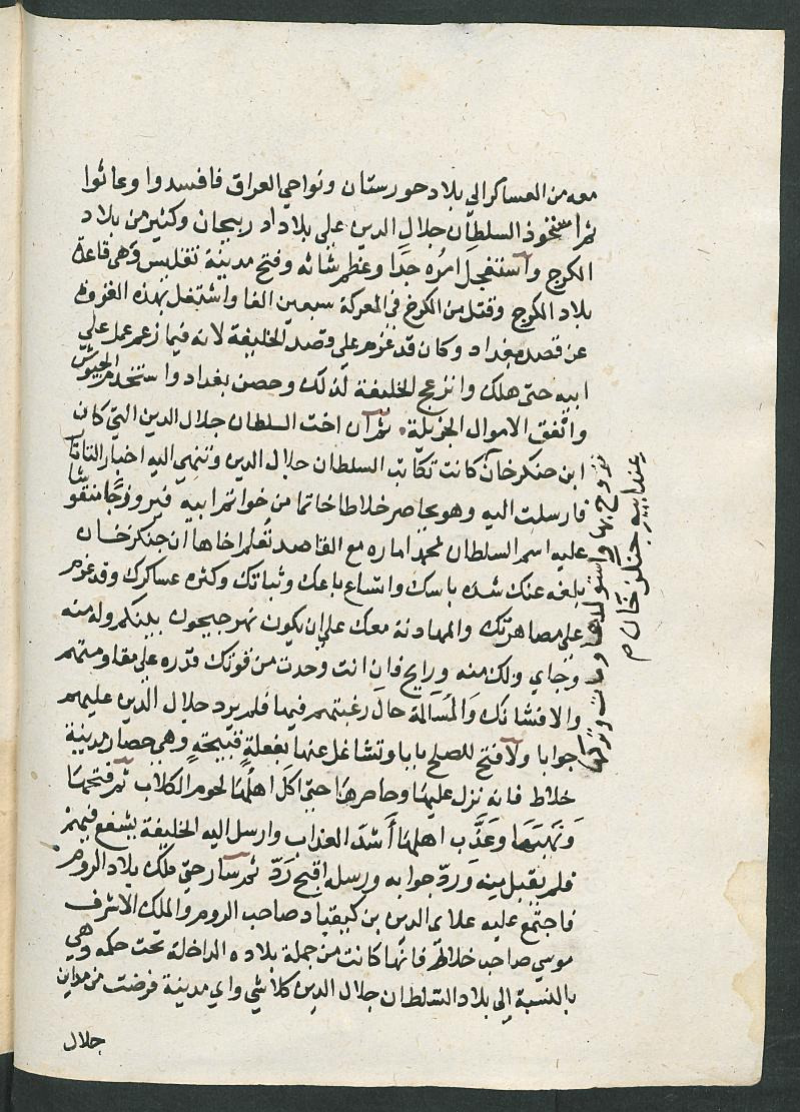 معه من العساكر الي بلاد خورستان ونواحي العراق فافسدوا وعاثوا
ثم استحوذ السلطان جلال الدين علي بلاد ادربيجان وكثير من بلاد
الكرج واستفحل امره جدا وعظم شانه وفتح مدينة تفليس وهي قاعدة
بلاد الكرج وقتل من الكرج في المعركة سبعين الفا واشتغل بهذه الغزوة
عن قصد بغداد وكان قد عزم علي قصد الخليفة لانه فيما زعم عمل علي
ابيه حتي هلك وانزعج الخليفة لذلك وحصن بغداد واستخدم الجيوش
وانفق الاموال الجزيلة ثم ان اخت السلطان جلال الدين التي كان
ابن جنكزخان كانت تكاتب السلطان جلال الدين وتنهي اليه اخبار التاتار
فارسلت اليه وهو يحاصر خلاطا خاتما من خواتم ابيه فيروزجا منقوشا
عليه اسم السلطان محمد اماره مع القاصد تعلم اخاها ان جنكزخان
بلغه عنك شدة باسك واتساع باعك وثباتك وكثرة عساكرك وقد عزم
علي مصاهرتك والمهادنة معك علي ان يكون نهر جيحون بينكم وله منه
وجاي ولك منه ورايح فان انت وجدت من قوتك قدره علي مقاومتهم
والا فشانك والمسالمة حال رغبتهم فيها فلم يرد جلال الدين عليهم
جوابا ولا فتح للصلح بابا وتشاغل عنها بفعلة قبيحة وهي حصار مدينة
خلاط فانه نزل عليها وحاصرها حتي اكل اهلها لحوم الكلاب ثم فتحها
ونهبها وعذب اهلها أشد العذاب وارسل اليه الخليفة يشفع فيهم
فلم يقبل منه ورد جوابه ورسله اقبح رد ثم سار حتي ملك بلاد الروم
فاجتمع عليه علاي الدين بن كيقباد صاحب الروم والملك الاشرف
موسي صاحب خلاط فانها كانت من جملة بلاده الداخلة تحت حكمه وهي
بالنسبة الي بلاد السلطان جلال الدين كلاشي واي مدينة فرضت من مداين
جلال
تزوج بها واستولدها ومات وتركها
عند ابيه جنكزخان م